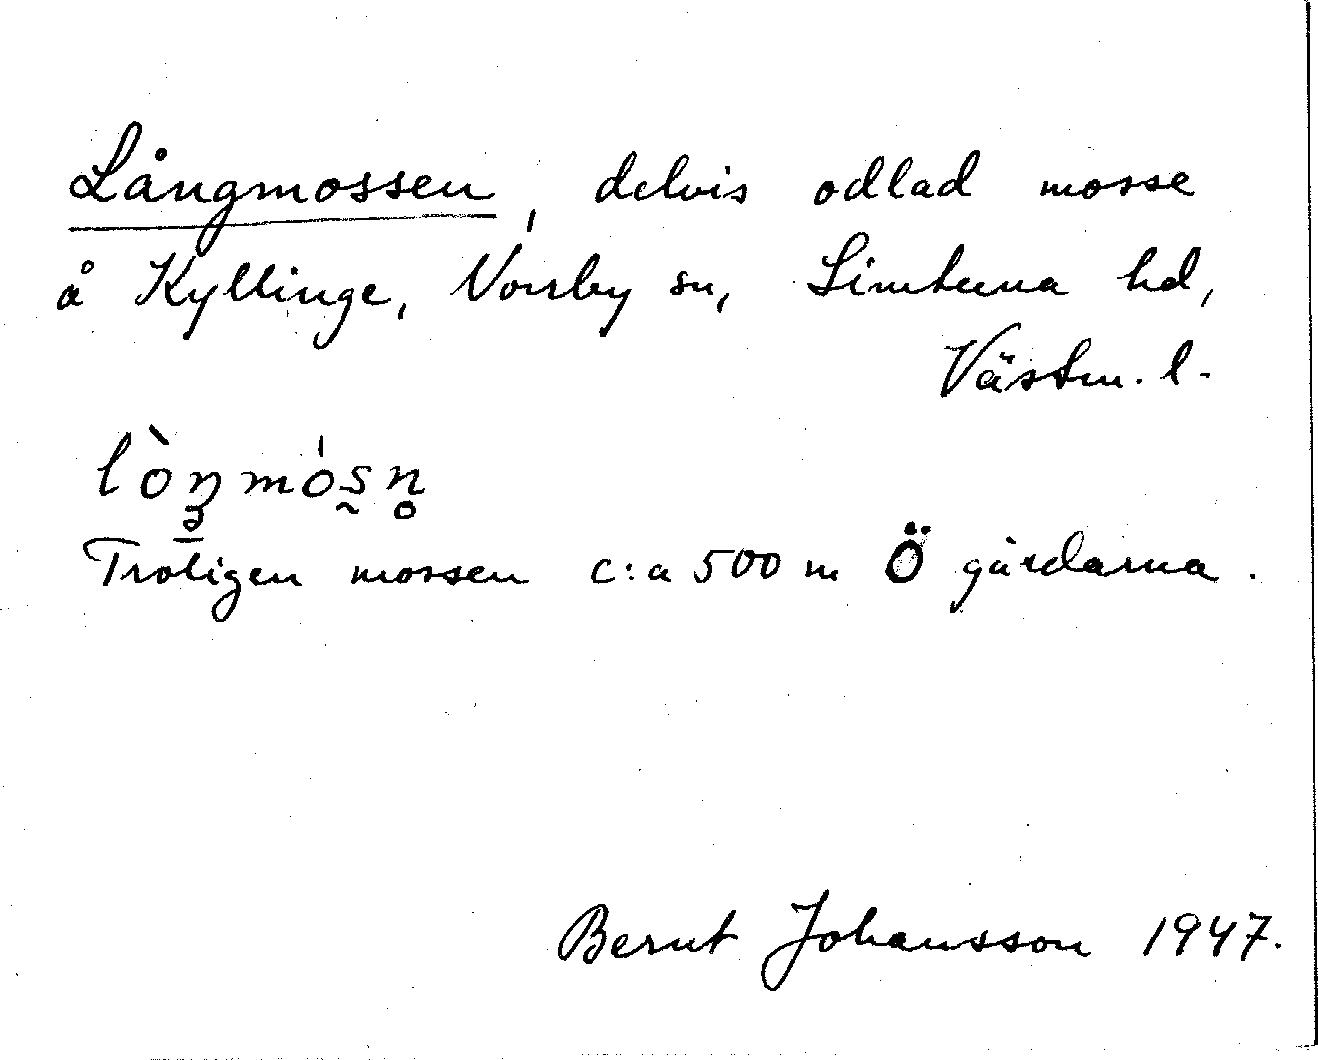 Långmossen, delvis odlad mosse
å Kyllinge, Norrby sn, Simtuna hd,
Västm. l.
lòŋmósn̥
Troligen mossen c:a 500 m Ö gårdarna.
Bernt Johansson 1947.